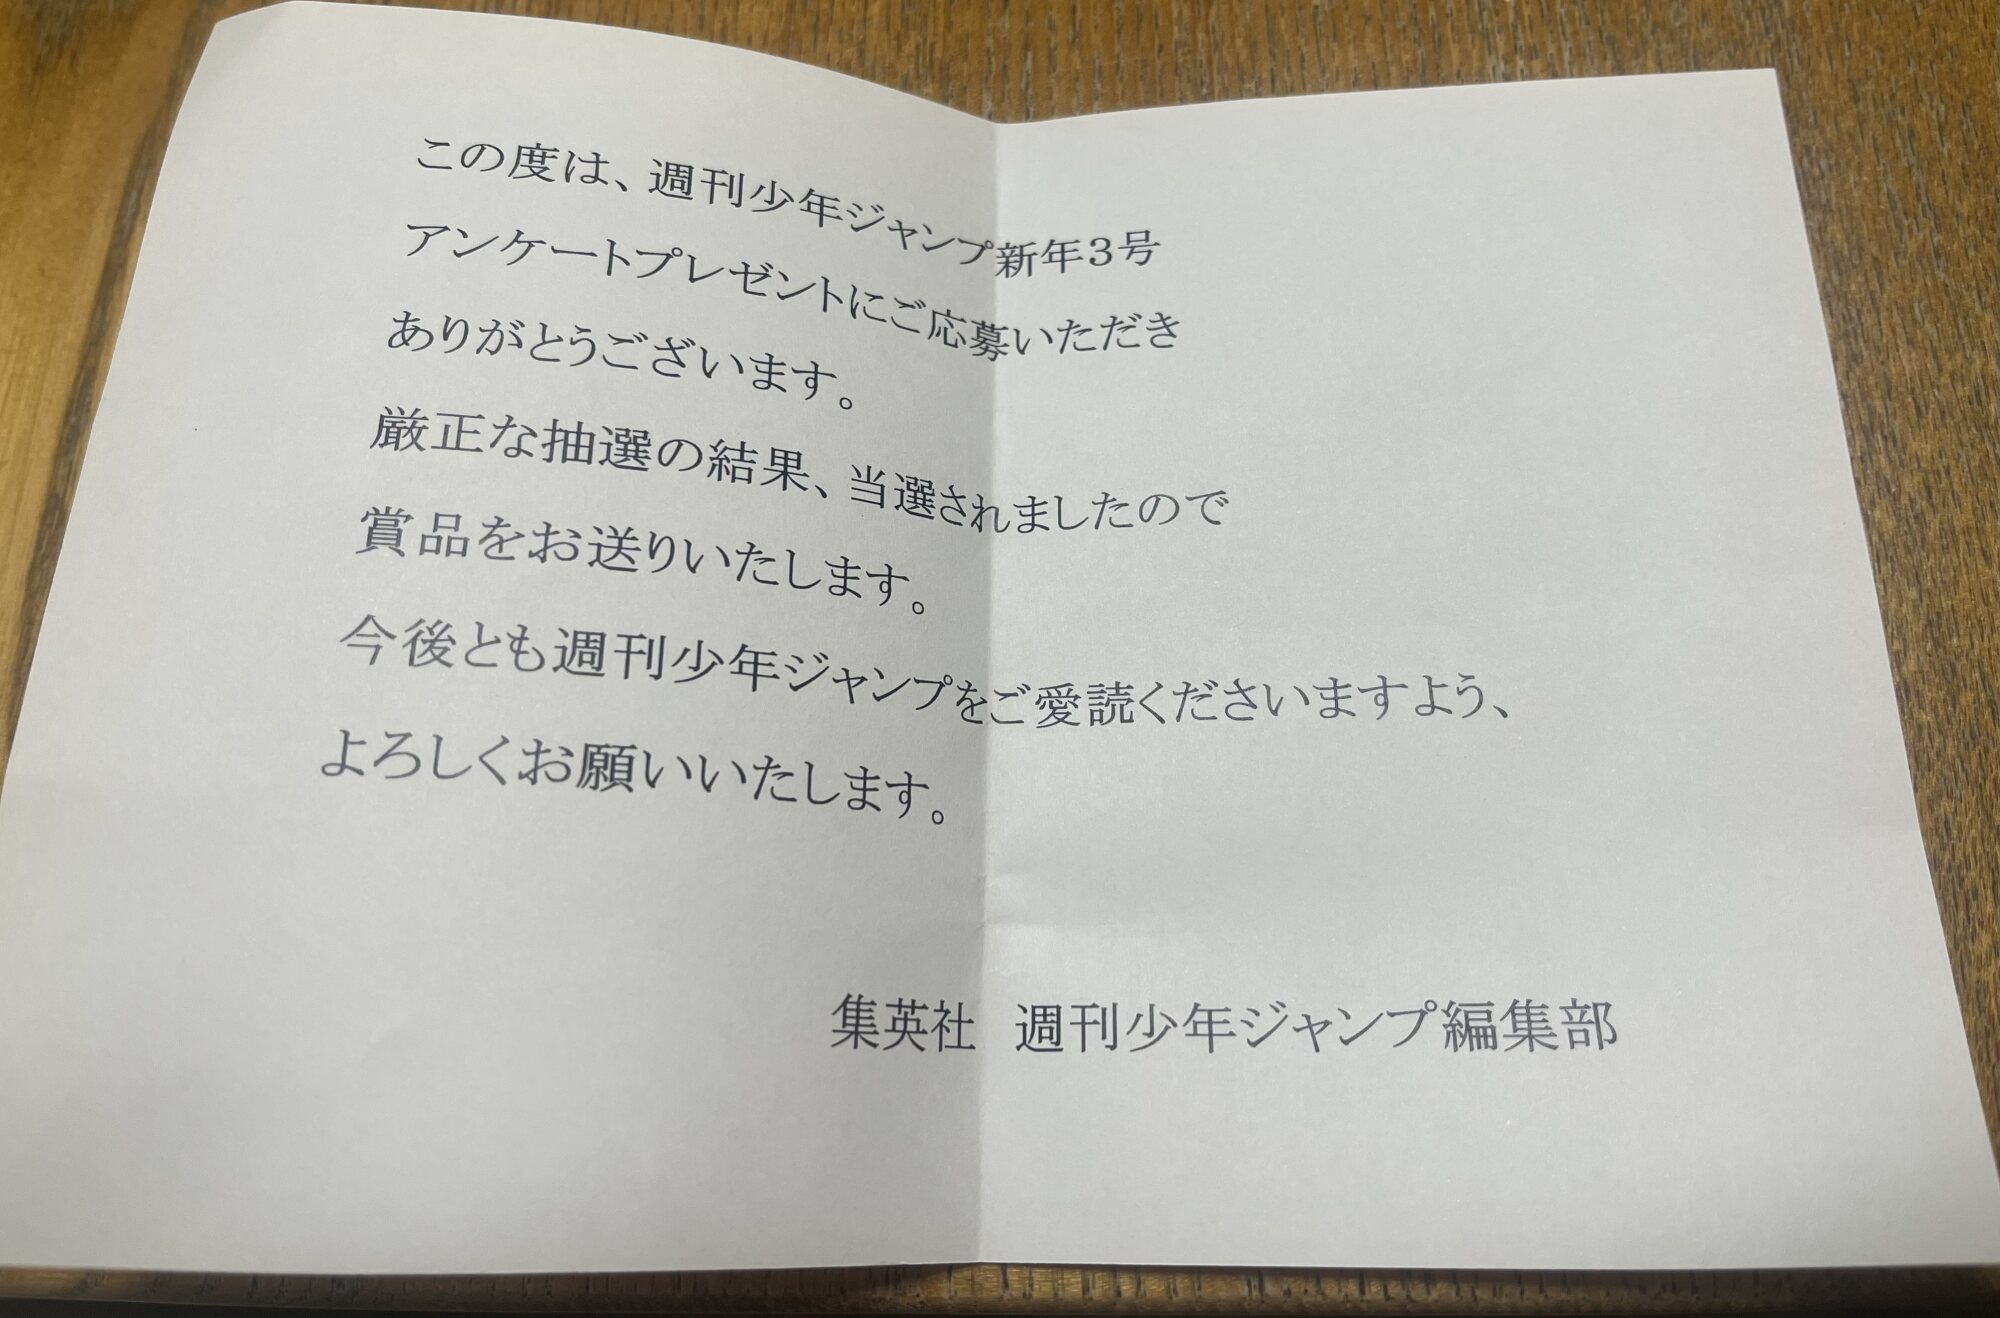 この度は、週刊少年ジャンプ新年３号
アンケートプレゼントにご応募いただき
ありがとうございます。
厳正な抽選の結果、当選されましたので
賞品をお送りいたします。
今後とも週刊少年ジャンプをご愛読くださいますよう、
よろしくお願いいたします。
集英社　週刊少年ジャンプ編集部